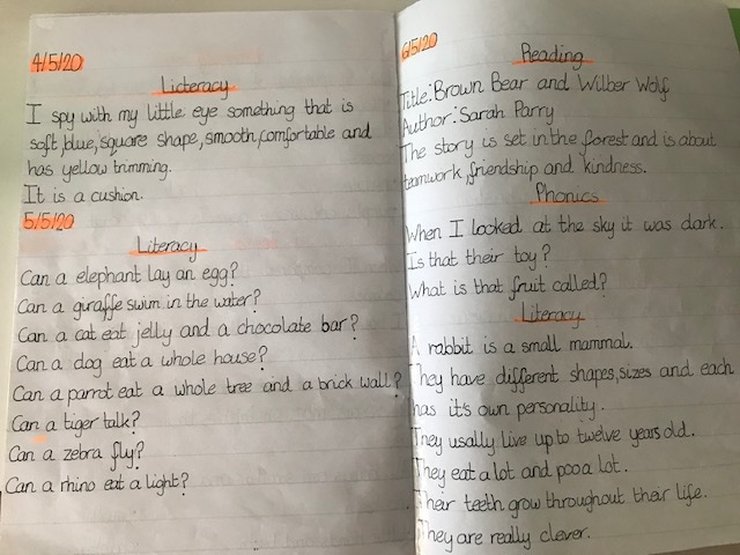 4/5/20
Licteracy
I spy with my little eye something that is
soft, blue, square shape, smooth, comfortable and
has yellow trimming.
It is a cushion.
5/5/20
Literacy
Can a elephant lay an egg?
Can a giraffe swim in the water?
Can a cat eat jelly and a chocolate bar?
Can a dog eat a whole house?
Can a parrot eat a whole tree and a brick wall?
Can a tiger talk?
Can a zebra fly?
Can a rhino eat a light?
6/5/20
Reading
Title: Brown Bear and Wilber Wolf
Author: Sarah Parry
The story is set in the forest and is about
teamwork, friendship and kindness.
Phonics
When I looked at the sky it was dark.
Is that their toy?
What is that fruit called?
Literacy
A rabbit is a small mammal.
They have different shapes, sizes and each
has it's own personality.
They usally live up to twelve years old.
They eat a lot and poo a lot.
Their teeth grow throughout their life.
They are really clever.